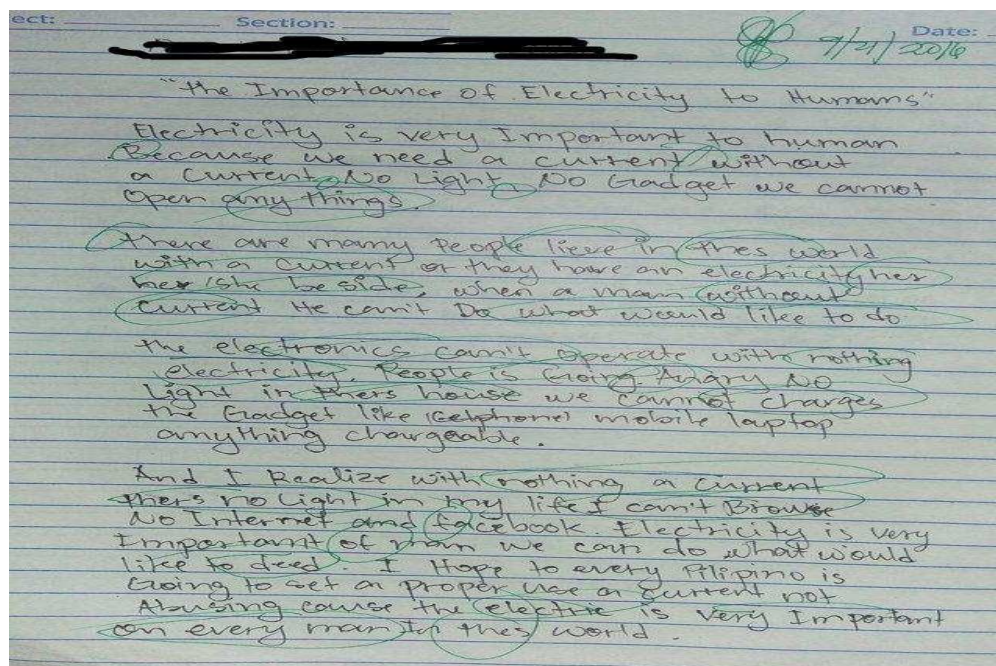 ect: Section: Date:
9/21/2016
"the Importance of Electricity to Humans"
Electricity is very Important to human
Because we need a current without
a current No Light No Gadget we cannot
Open any things.
there are many People lieve in thes world
with a current or they have an electricity her
her/she be side, when a man without
Current He can't Do what would like to do
the electronics can't operate with nothing
electricity. People is Going Angry No
Light in thers house we cannot charges
the Gadget like (Cellphone) mobile laptop
anything chargeable.
And I Realize with nothing a Current
thers no Light in my life I can't Browse
No Internet and facebook. Electricity is very
Important of man we can do what would
like to deed. I Hope to every Filipino is
Going to set a proper use a current not
Abusing cause the electric is Very Important
on every man in thes world.